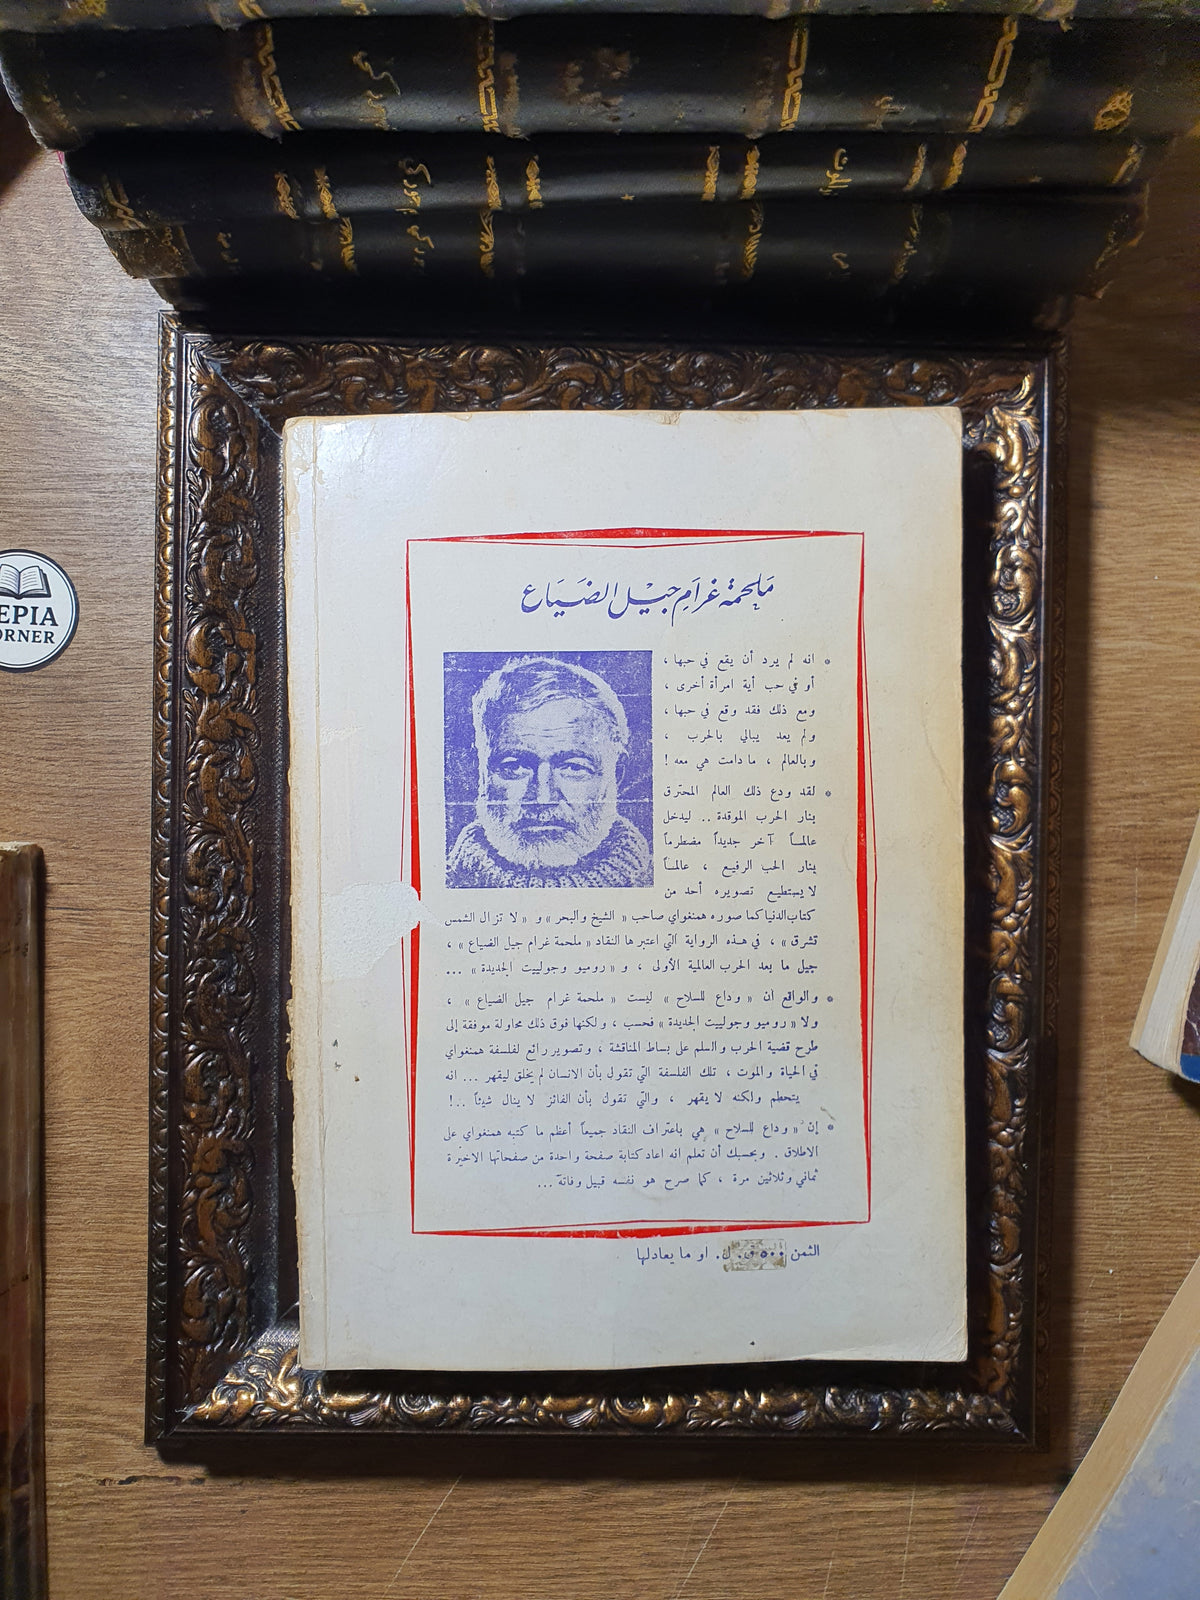 EPIA
ORNER
مَلحمَة غرَام جيْل الضَيَاع
* انه لم يرد أن يقع في حبها ،
أو في حب أية امرأة أخرى ،
ومع ذلك فقد وقع في حبها ،
ولم يعد يبالي بالحرب ،
وبالعالم ، ما دامت هي معه !
* لقد ودع ذلك العالم المحترق
بنار الحرب الموقدة .. ليدخل
عالمـاً آخر جديداً مضطرماً
بنار الحب الرفيع ، عالمـاً
لا يستطيع تصويره أحد من
كتاب الدنيا كما صوره همنغواي صاحب « الشيخ والبحر » و « لا تزال الشمس
تشرق » ، في هـذه الرواية التي اعتبرها النقاد « ملحمة غرام جيل الضياع » ،
جيل ما بعد الحرب العالمية الأولى ، و « روميو وجولييت الجديدة » ...
* والواقع ان « وداع للسلاح » ليست « ملحمة غرام جيل الضياع » ،
ولا « روميو وجولييت الجديدة » فحسب ، ولكنها فوق ذلك محاولة موفقة إلى
طرح قضية الحرب والسلم على بساط المناقشة ، وتصوير رائع لفلسفة همنغواي
في الحياة والموت ، تلك الفلسفة التي تقول بأن الانسان لم يخلق ليقهر ... انه
يتحطم ولكنه لا يقهر ، والتي تقول بأن الفائز لا ينال شيئاً ..!
* إن « وداع للسلاح » هي باعتراف النقاد جميعاً أعظم ما كتبه همنغواي على
الاطلاق . وبحسبك أن تعلم انه اعاد كتابة صفحة واحدة من صفحاتها الاخيرة
ثماني وثلاثين مرة ، كما صرح هو نفسه قبيل وفاته ...
الثمن ٥٠٠ ق. ل. او ما يعادلها